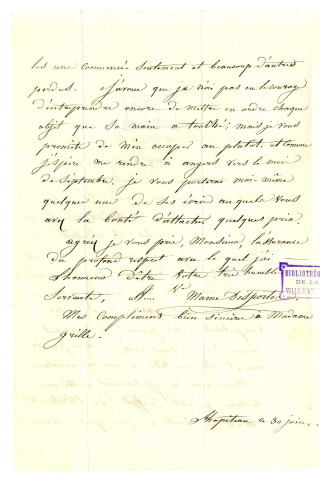 les une commencée seulement et beaucoup d'autres
perdus. J'avoue que je n'ai pas eu le courage
d'entreprendre encore de mettre en ordre chaque
objet que sa main a touché; mais je vous
promets de m'en occuper au plutot. et comme
j'espère me rendre à angers vers le mois
de Septembre, je vous porterai moi-même
quelque une de ses écrits auquels vous
avez la bonté d'attacher quelques prix.
agréez je vous prie, Monsieur, l'assurance
du profond respect avec lequel j'ai
l'honneur d'être votre très humble
Servante, Ve Mame Desportes.
Mes compliment bien sincère à Madame
grille.
BIBLIOTHÈQ
DE LA
VILLE D'A
a 30 juin.